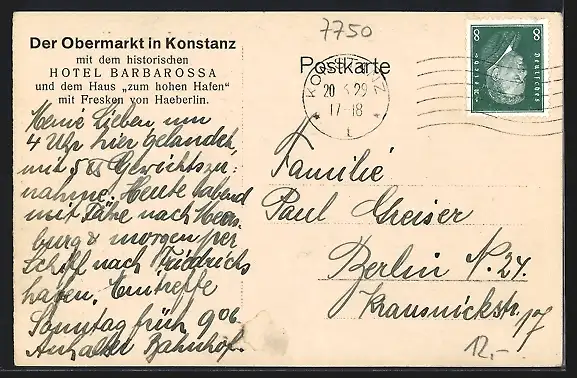 7750
Der Obermarkt in Konstanz
mit dem historischen
HOTEL BARBAROSSA
und dem Haus „zum hohen Hafen“
mit Fresken von Haeberlin.
Postkarte
KO Z
20 29
17-18
8 Deutsches Reich 8
Meine Lieben um
4 Uhr hier gelandet,
mit 5 ℔ Gewichtszu-
nahme. Heute Abend
mit Fähre nach Meers-
burg & morgen per
Schiff nach Friedrichs
hafen. Eintreffe
Sonntag früh 9 06
Anhalter Bahnhof.
Familie
Paul Greiser
Berlin N. 24.
Krausnickstr. 17
12,-